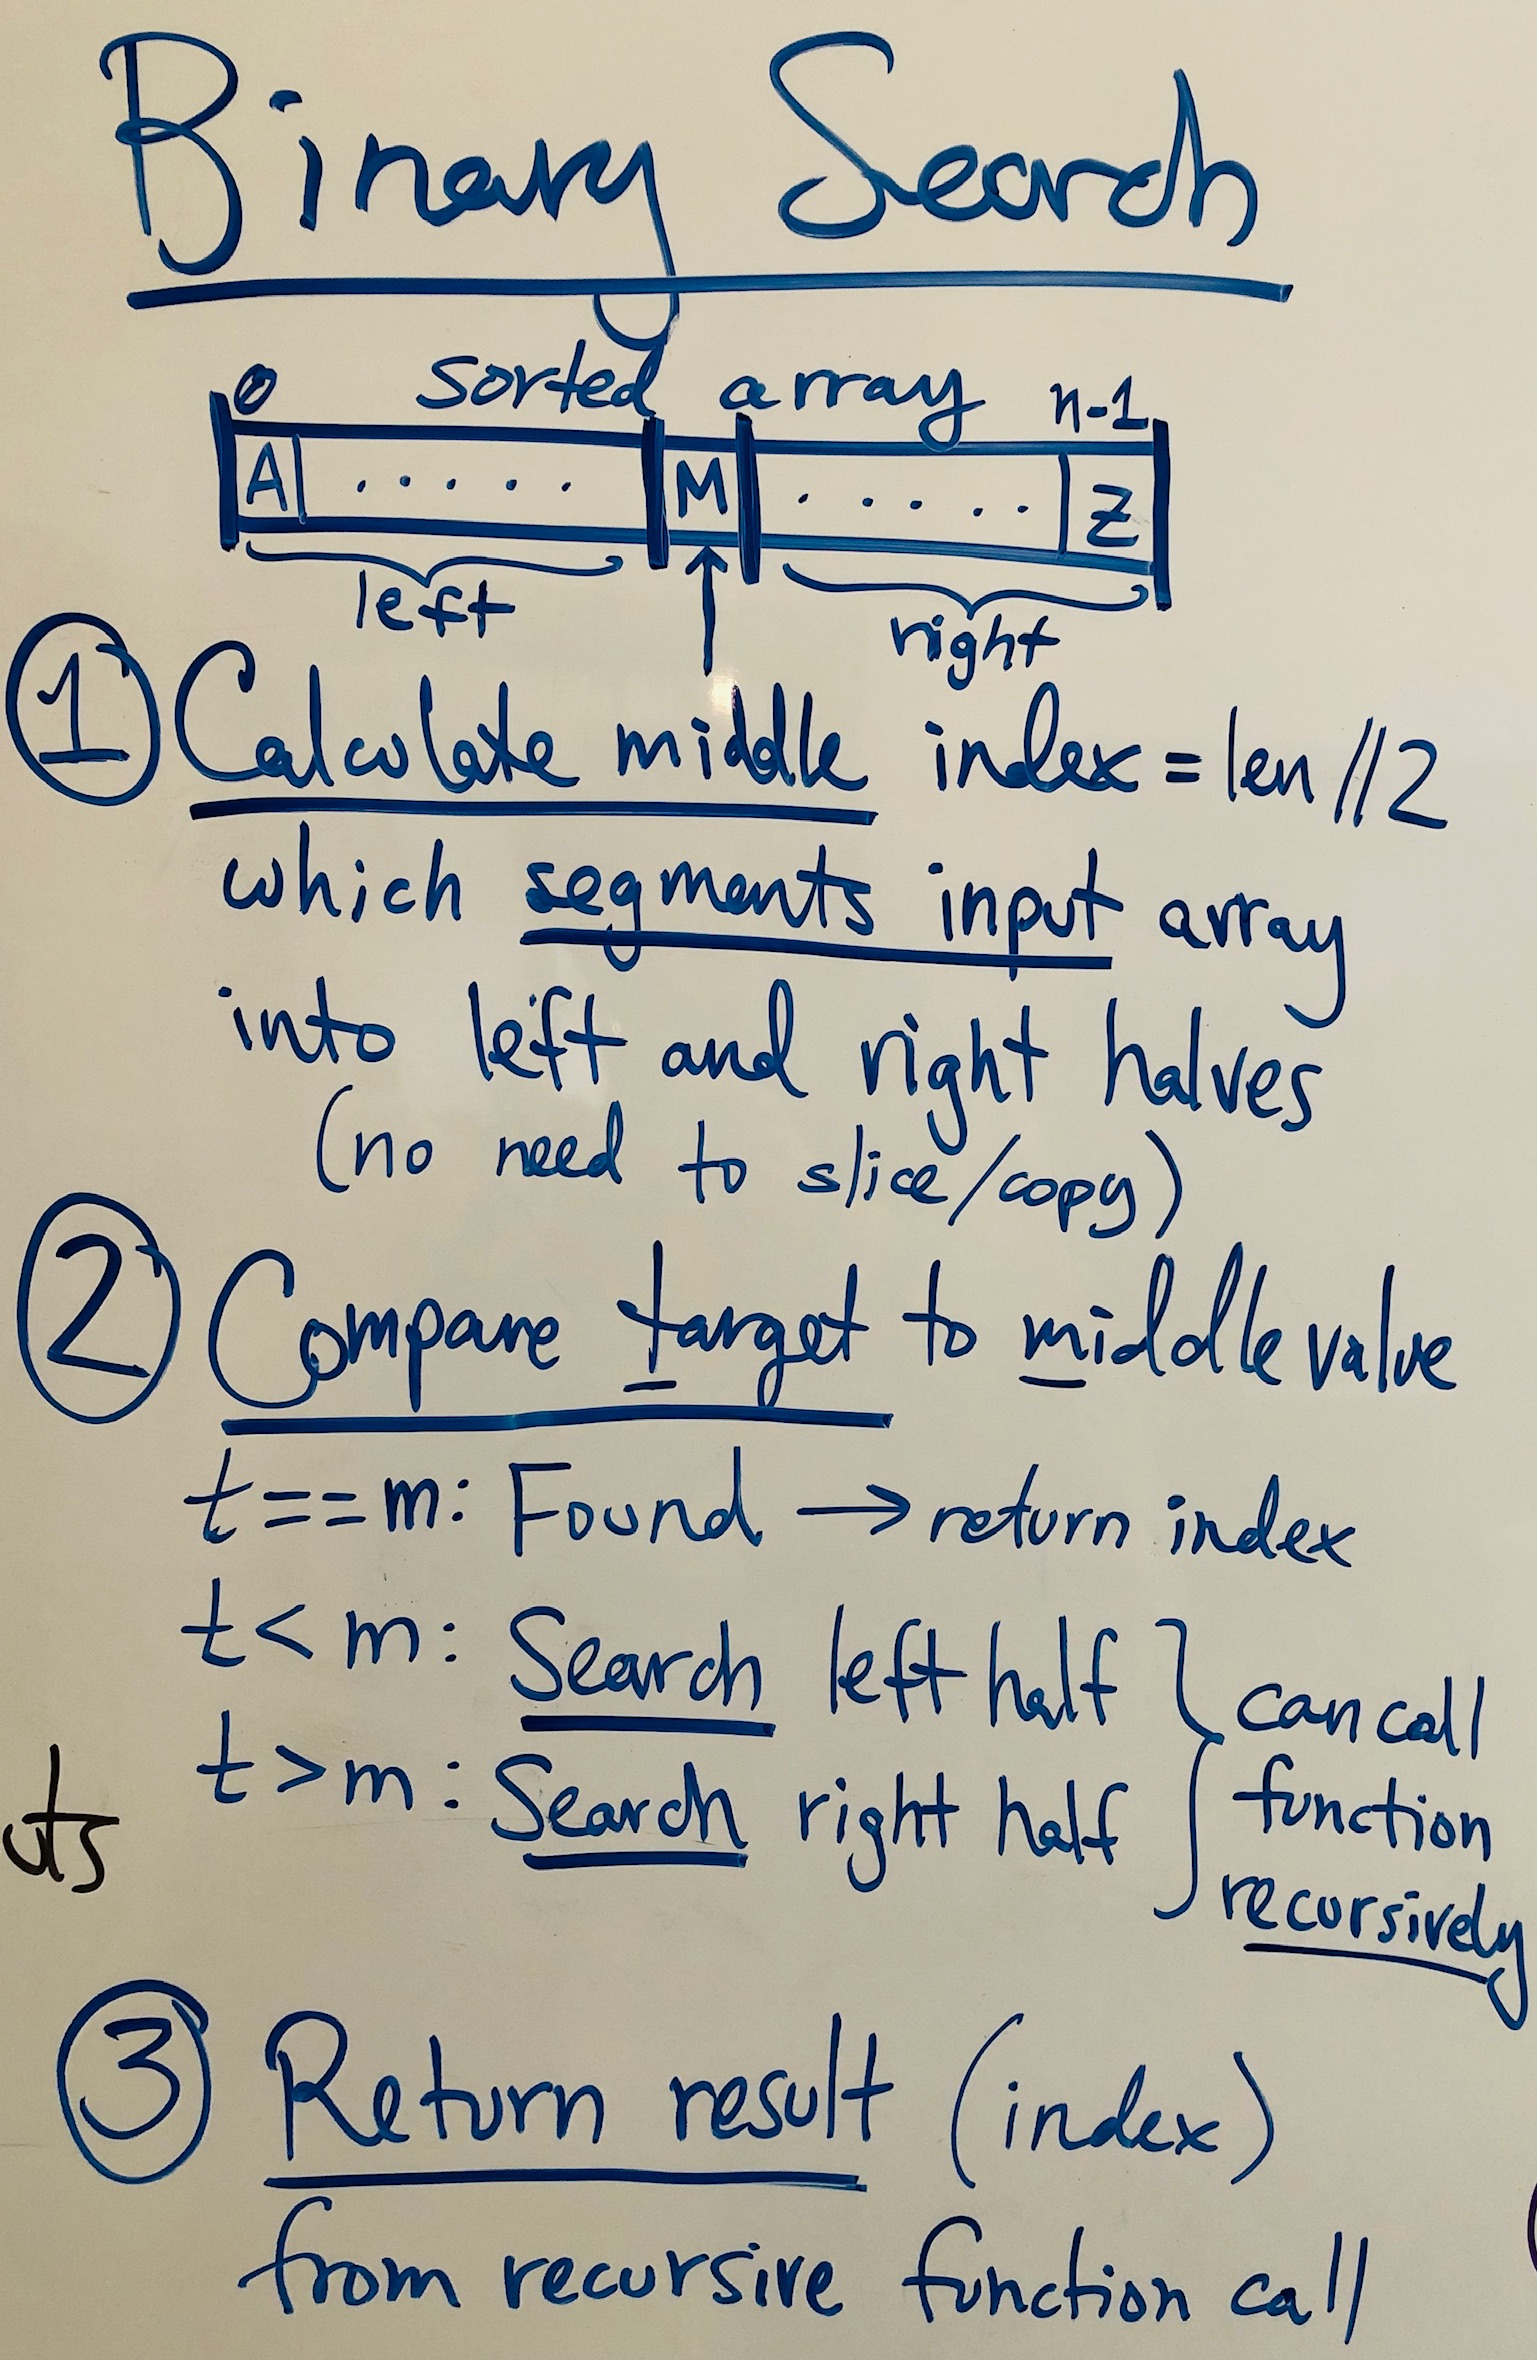 Binary Search
0 sorted array n-1
A ..... M ..... Z
left right
1 Calculate middle index = len // 2
which segments input array
into left and right halves
(no need to slice/copy)
2 Compare target to middle value
t == m: Found → return index
t < m: Search left half
t > m: Search right half
can call
function
recursively
uts
3 Return result (index)
from recursive function call